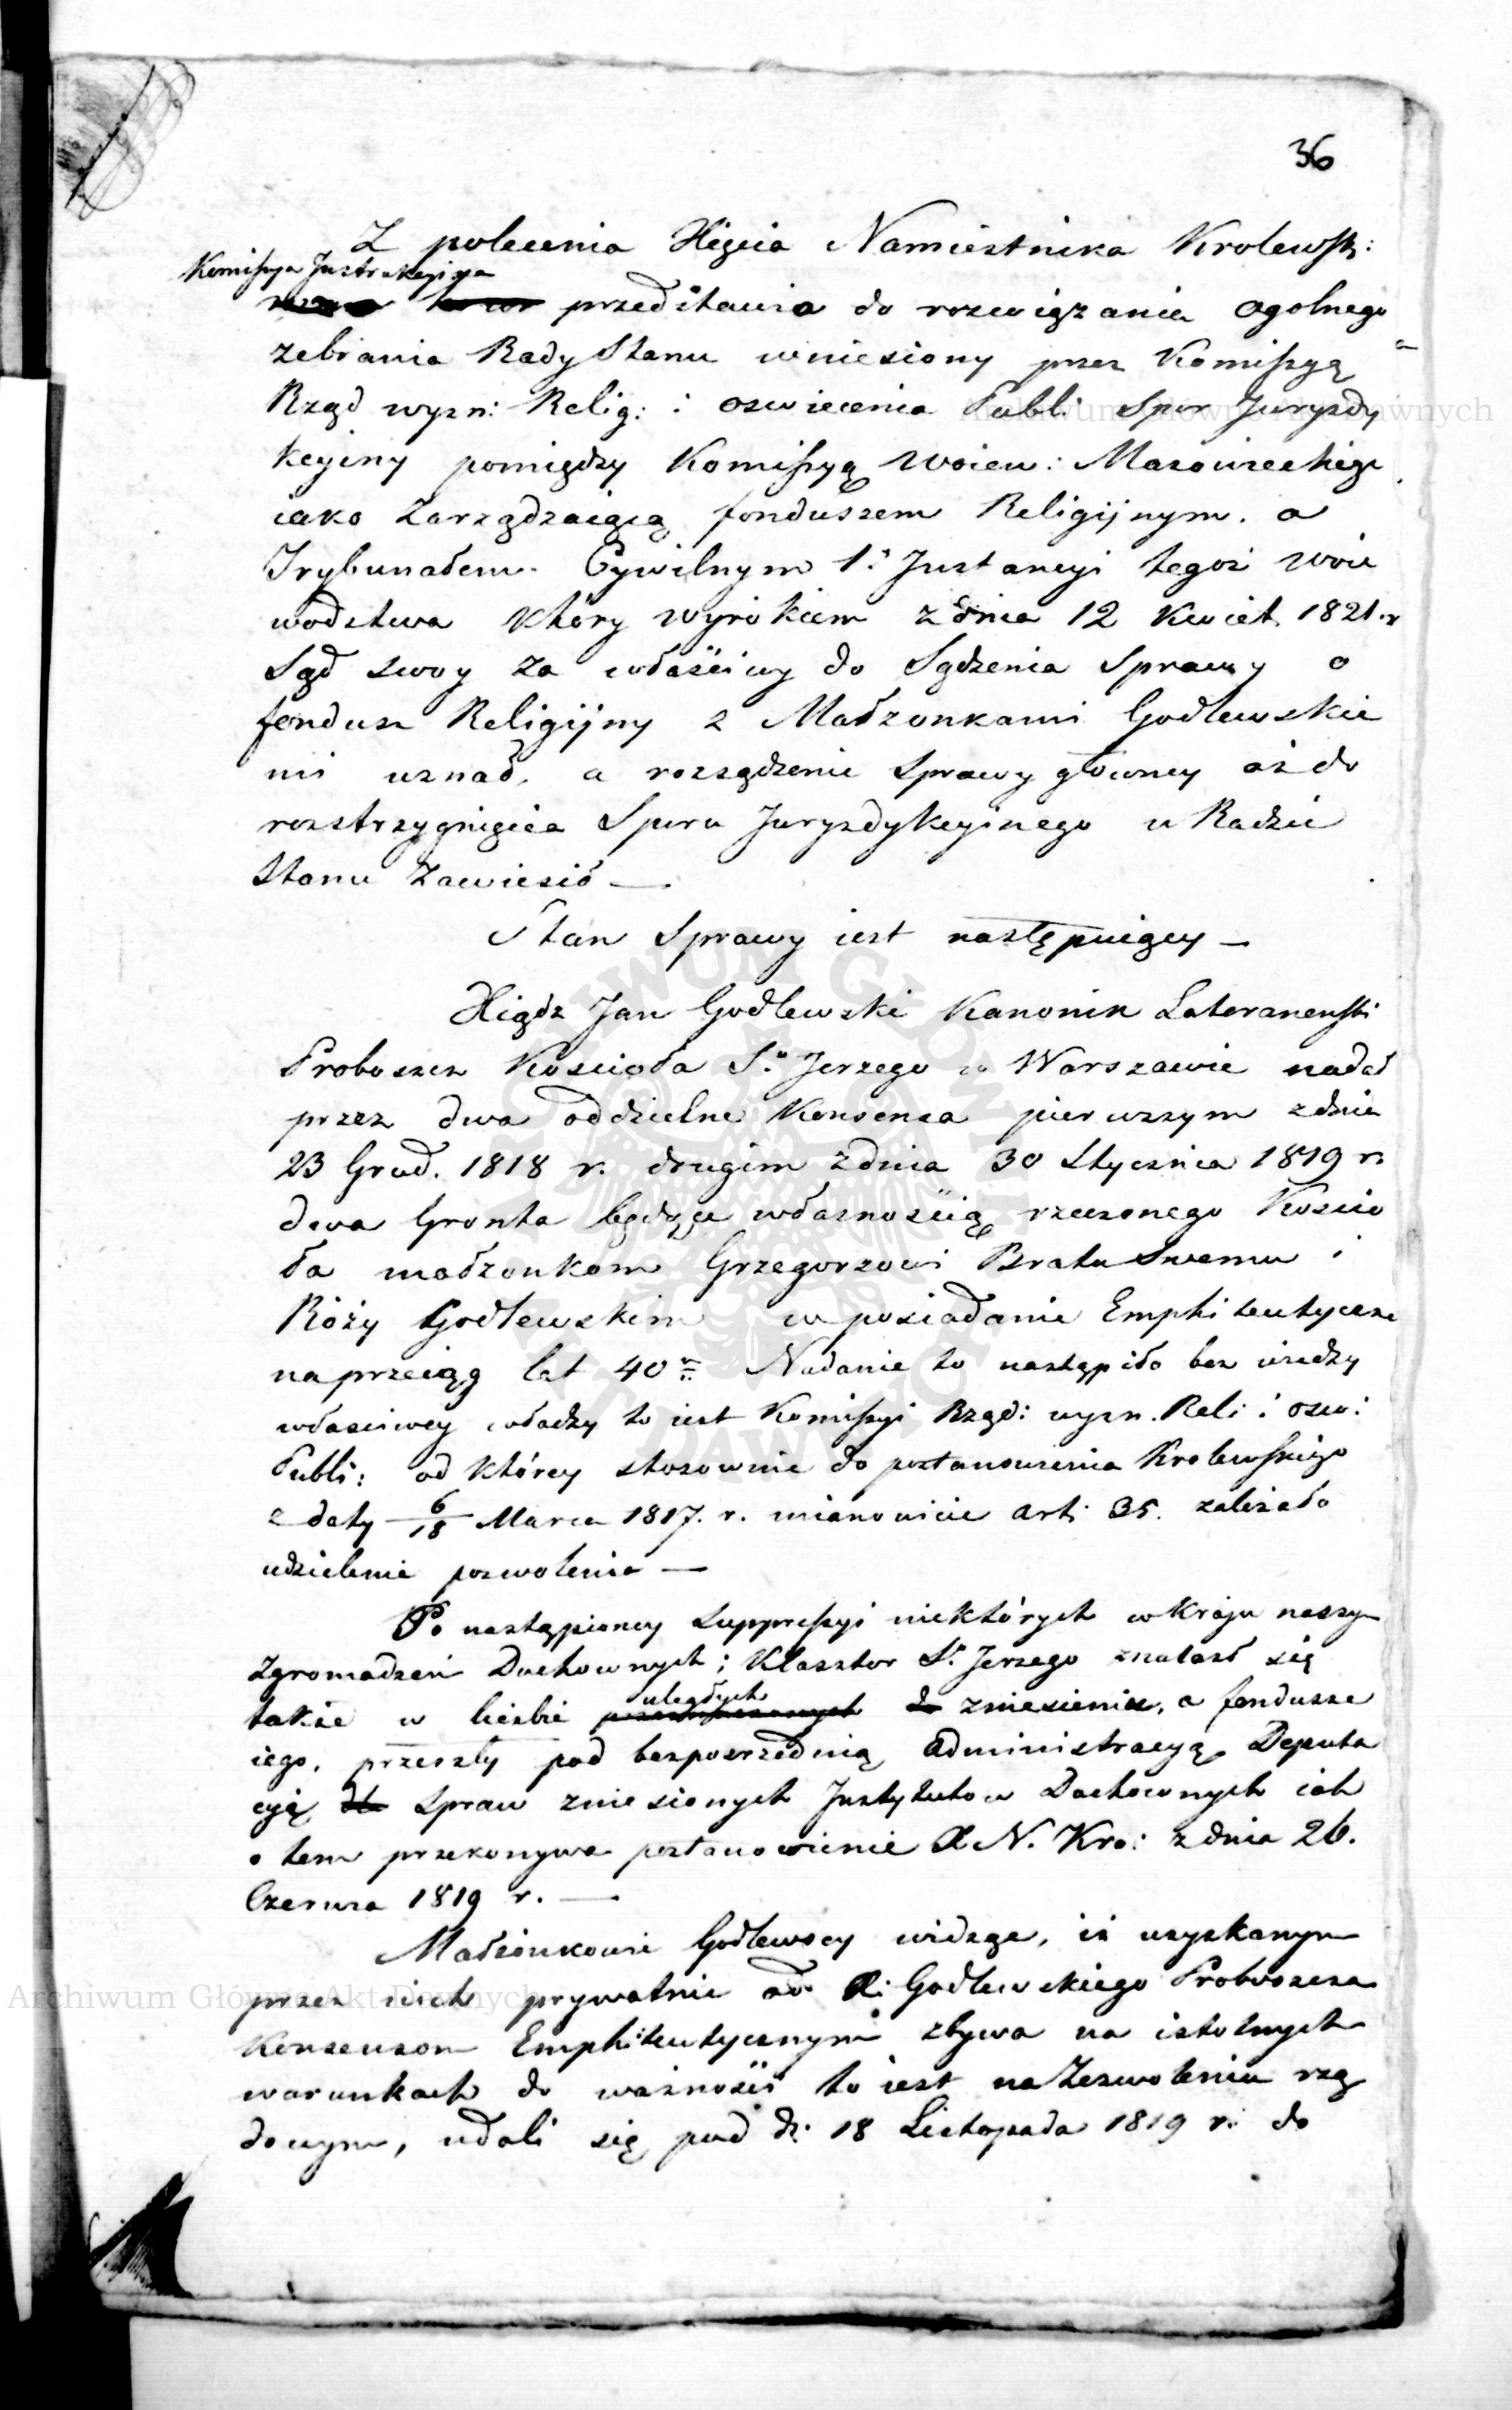 36
Z polecenia Xięcia Namiestnika Krolewsk:
Komissya Instrukcyjna
przedstawia do rozwiązania ogolnego
zebrania Rady Stanu wniesiony przez Komissyą
Rząd wyzn: Relig: i oswiecenia Publi: Spor Juryzdy
kcyiny pomiędzy Komissyą Woiew: Mazowieckiego
iako Zarządzaiącą funduszem Religijnym. a
Trybunałem Cywilnym 1. Instancyi tegoż Woie
wodztwa który wyrokiem z dnia 12 Kwiet. 1821. r
Sąd swoy za właściwy do Sądzenia Sprawy o
fundusz Religijny z Małzonkami Godlewskie
mi uznał, a rozsądzenie Sprawy głowney aż do
rozstrzygnięcia Sporu Juryzdykcyinego w Radzie
Stanu Zawiesił —
Stan Sprawy iest następuiący —
Xiądz Jan Godlewski Kanonik Lateranenski
Proboszcz Kościoła S. Jerzego w Warszawie nadał
przez dwa oddzielne Konsensa pierwszym z dnia
23 Grud. 1818 r. drugim z dnia 30 Stycznia 1819 r.
dwa Gronta będące własnością rzeczonego Kościo
ła małzonkom Grzegorzowi Bratu Swemu i
Róży Godlewskim w posiadanie Emphiteutyczne
na przeciąg lat 40 Nadanie to nastąpiło bez wiedzy
właściwey władzy to iest Komissyi Rząd: wyzn. Reli: i oswi:
Publi: od którey stosownie do postanowienia Krolewskiego
z daty 6/18 Marca 1817. r. mianowicie art. 35. zależało
udzielenie pozwolenia —
Po nastąpioney Suppressyi niektórych w kraju naszym
Zgromadzeń Duchownych; Klasztor S. Jerzego znalazł się
uległych
także w liczbie zniesieniu, a fundusze
iego, przeszły pod bezpośrzednią administracyą Deputa
cyi Spraw zniesionych Instytutow Duchownych iak
o tem przekonywa postanowienie X N. Kro: z dnia 26.
Czerwca 1819 r. —
Małżonkowie Godlewscy widząc, iż uzyskanym
przez nich prywatnie od X. Godlewskiego Proboszcza
Konsensom Emphiteutycznym zbywa na istotnych
warunkach do ważności to iest na Zezwoleniu rzą
dowym, udali się pod d. 18 Listopada 1819 r. do
Archiwum Główne Akt Dawnych
Archiwum Główne Akt Dawnych
ARCHIWUM GŁÓWNE AKT DAWNYCH